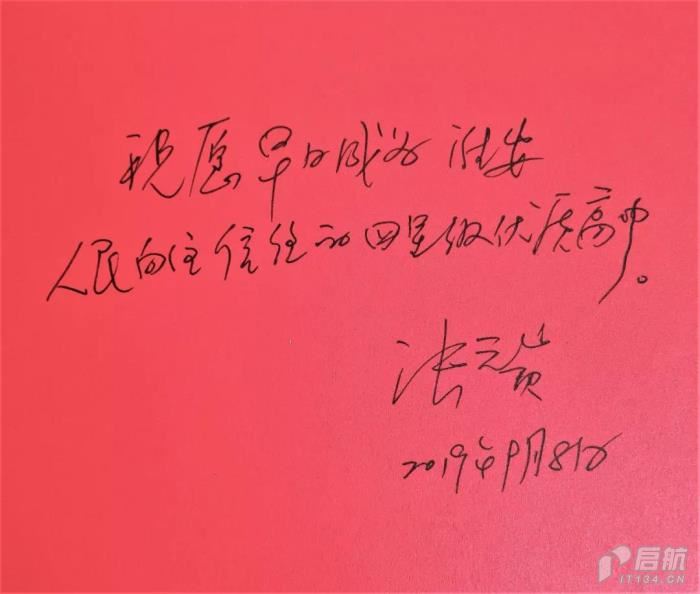 祝愿早日成为淮安
人民向往信任的四星级优质高中。
张元贵
2019年9月8日
启航
IT134.CN